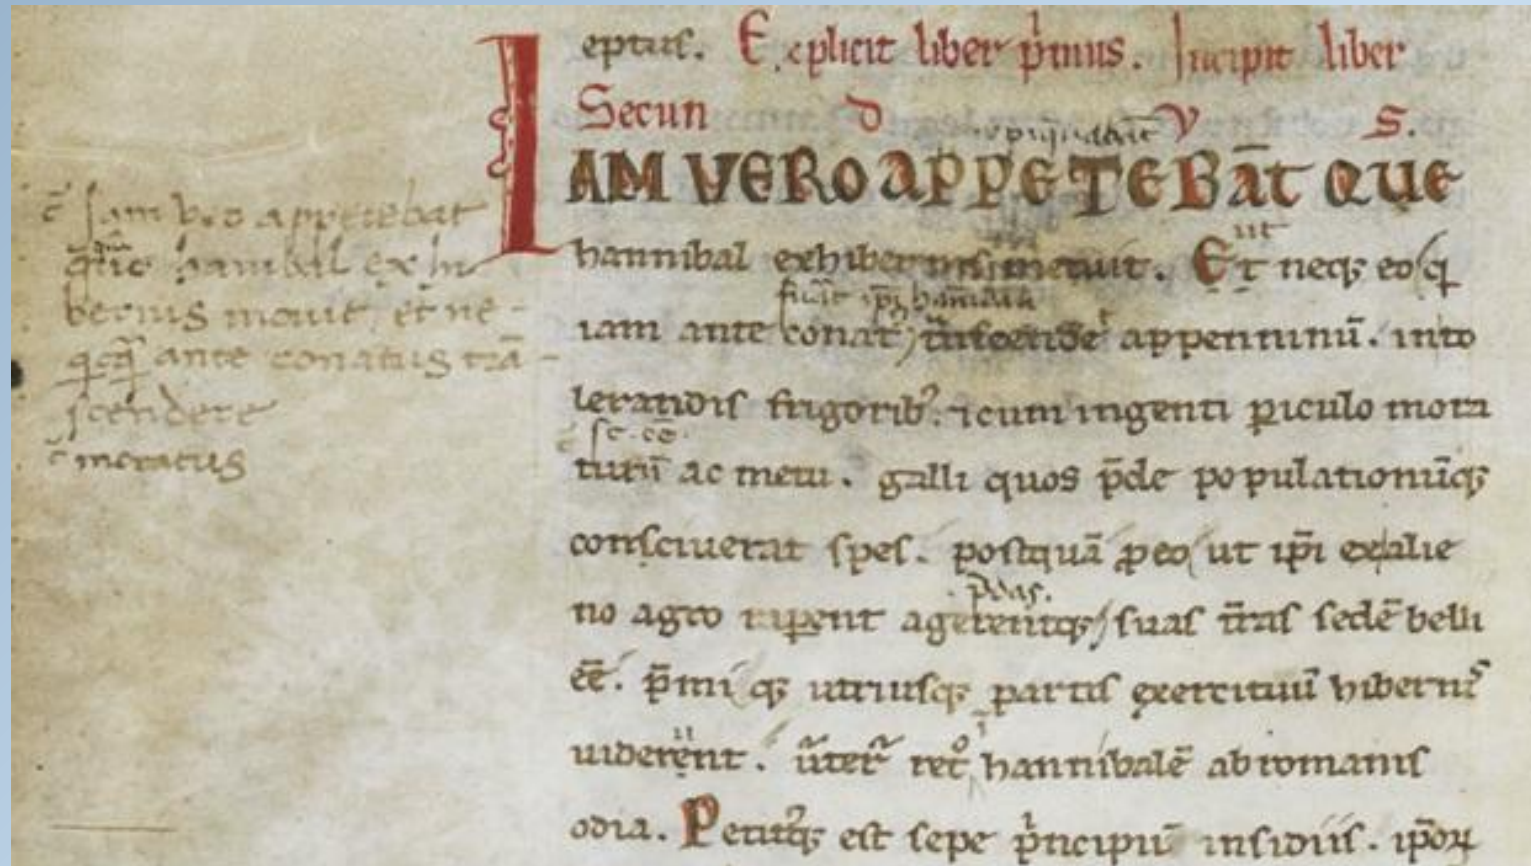 eptus. Explicit liber p̄mus. Incipit liber
Secun d V S.
IAM VERO APPETEBĀT QUE
hannibal exhibernis mouit. Et neq; eo q
iam ante conat' t̄nscende appenninū. into
lerandis frigorib;. 7 cum ingenti periculo mora
turū ac metu. galli quos p̄de populationūq;
consciuerat spes. postquā pro eo ut ip̄i exalie
no agro raperent agerentq; suas t̄ras sedē belli
eē. p̄mi q; utriusq; partis exercituū hibernis
uiderent. ūter̄ ret° hannibalē abromanis
odia. Petitusq; est sepe p̄ncipū insidiis. ip̄oꝝ
ut
p̄das.
c̄ Iam vero appetebat
hanibal ex hi
bernis mouit et ne
ante conatus trā
scendere
moratus